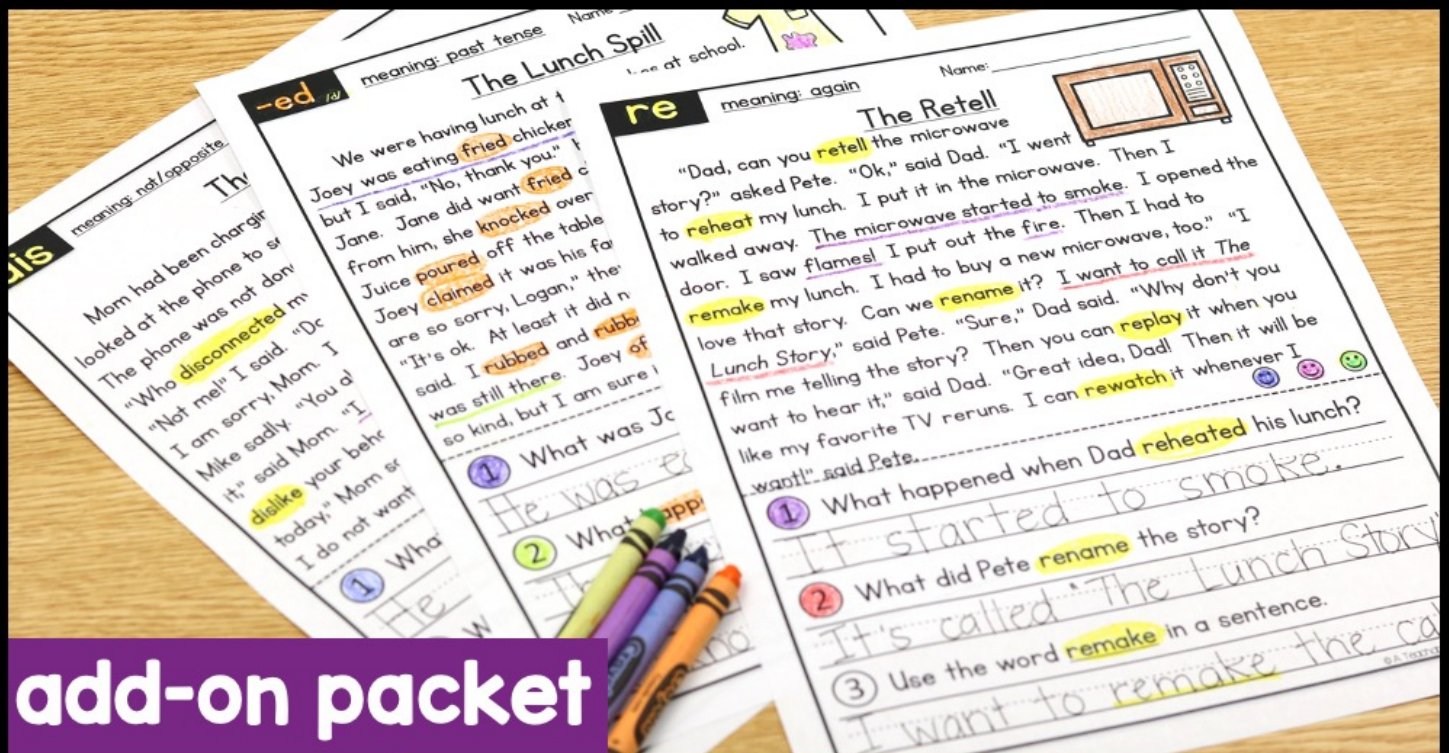 dis
meaning: not/opposite
Mom had been
looked at the phone to
The phone was not
"Who disconnected
"Not me!" I said.
I am sorry, Mom. I
Mike sadly. "You
it," said Mom. "I
dislike your
today," Mom
I do not want
1 Wha
He
-ed /d/
meaning: past tense
Name
The Lunch Spill
at school.
We were having lunch at
Joey was eating fried chicken
but I said, "No, thank you."
Jane. Jane did want fried
from him, she knocked over
Juice poured off the table
Joey claimed it was his
are so sorry, Logan,"
"It's ok. At least it did
said. I rubbed and
was still there. Joey
so kind, but I am sure
1 What was
He was
2 What
re
meaning: again
Name:
The Retell
"Dad, can you retell the microwave
story?" asked Pete. "Ok," said Dad. "I went
to reheat my lunch. I put it in the microwave. Then I
walked away. The microwave started to smoke. I opened the
door. I saw flames! I put out the fire. Then I had to
remake my lunch. I had to buy a new microwave, too." "I
love that story. Can we rename it? I want to call it The
Lunch Story," said Pete. "Sure," Dad said. "Why don't you
film me telling the story? Then you can replay it when you
want to hear it," said Dad. "Great idea, Dad! Then it will be
like my favorite TV reruns. I can rewatch it whenever I
want!" said Pete.
1 What happened when Dad reheated his lunch?
It started to smoke.
2 What did Pete rename the story?
It's called "The Lunch Story
3 Use the word remake in a sentence.
I want to remake the
add-on packet